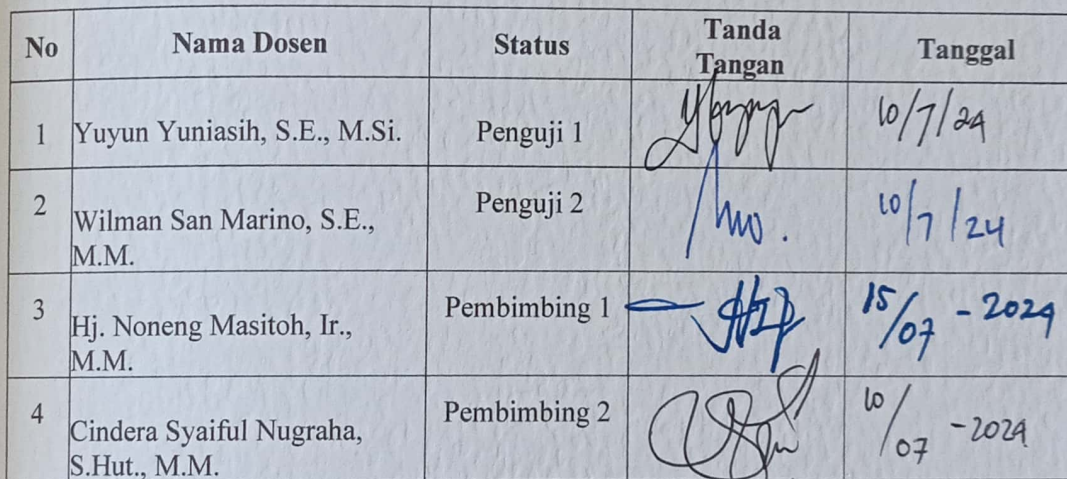 No Nama Dosen Status Tanda Tangan Tanggal
1 Yuyun Yuniasih, S.E., M.Si. Penguji 1 10/7/24
2 Wilman San Marino, S.E., M.M. Penguji 2 10/7/24
3 Hj. Noneng Masitoh, Ir., M.M. Pembimbing 1 15/07-2024
4 Cindera Syaiful Nugraha, S.Hut., M.M. Pembimbing 2 10/07-2024